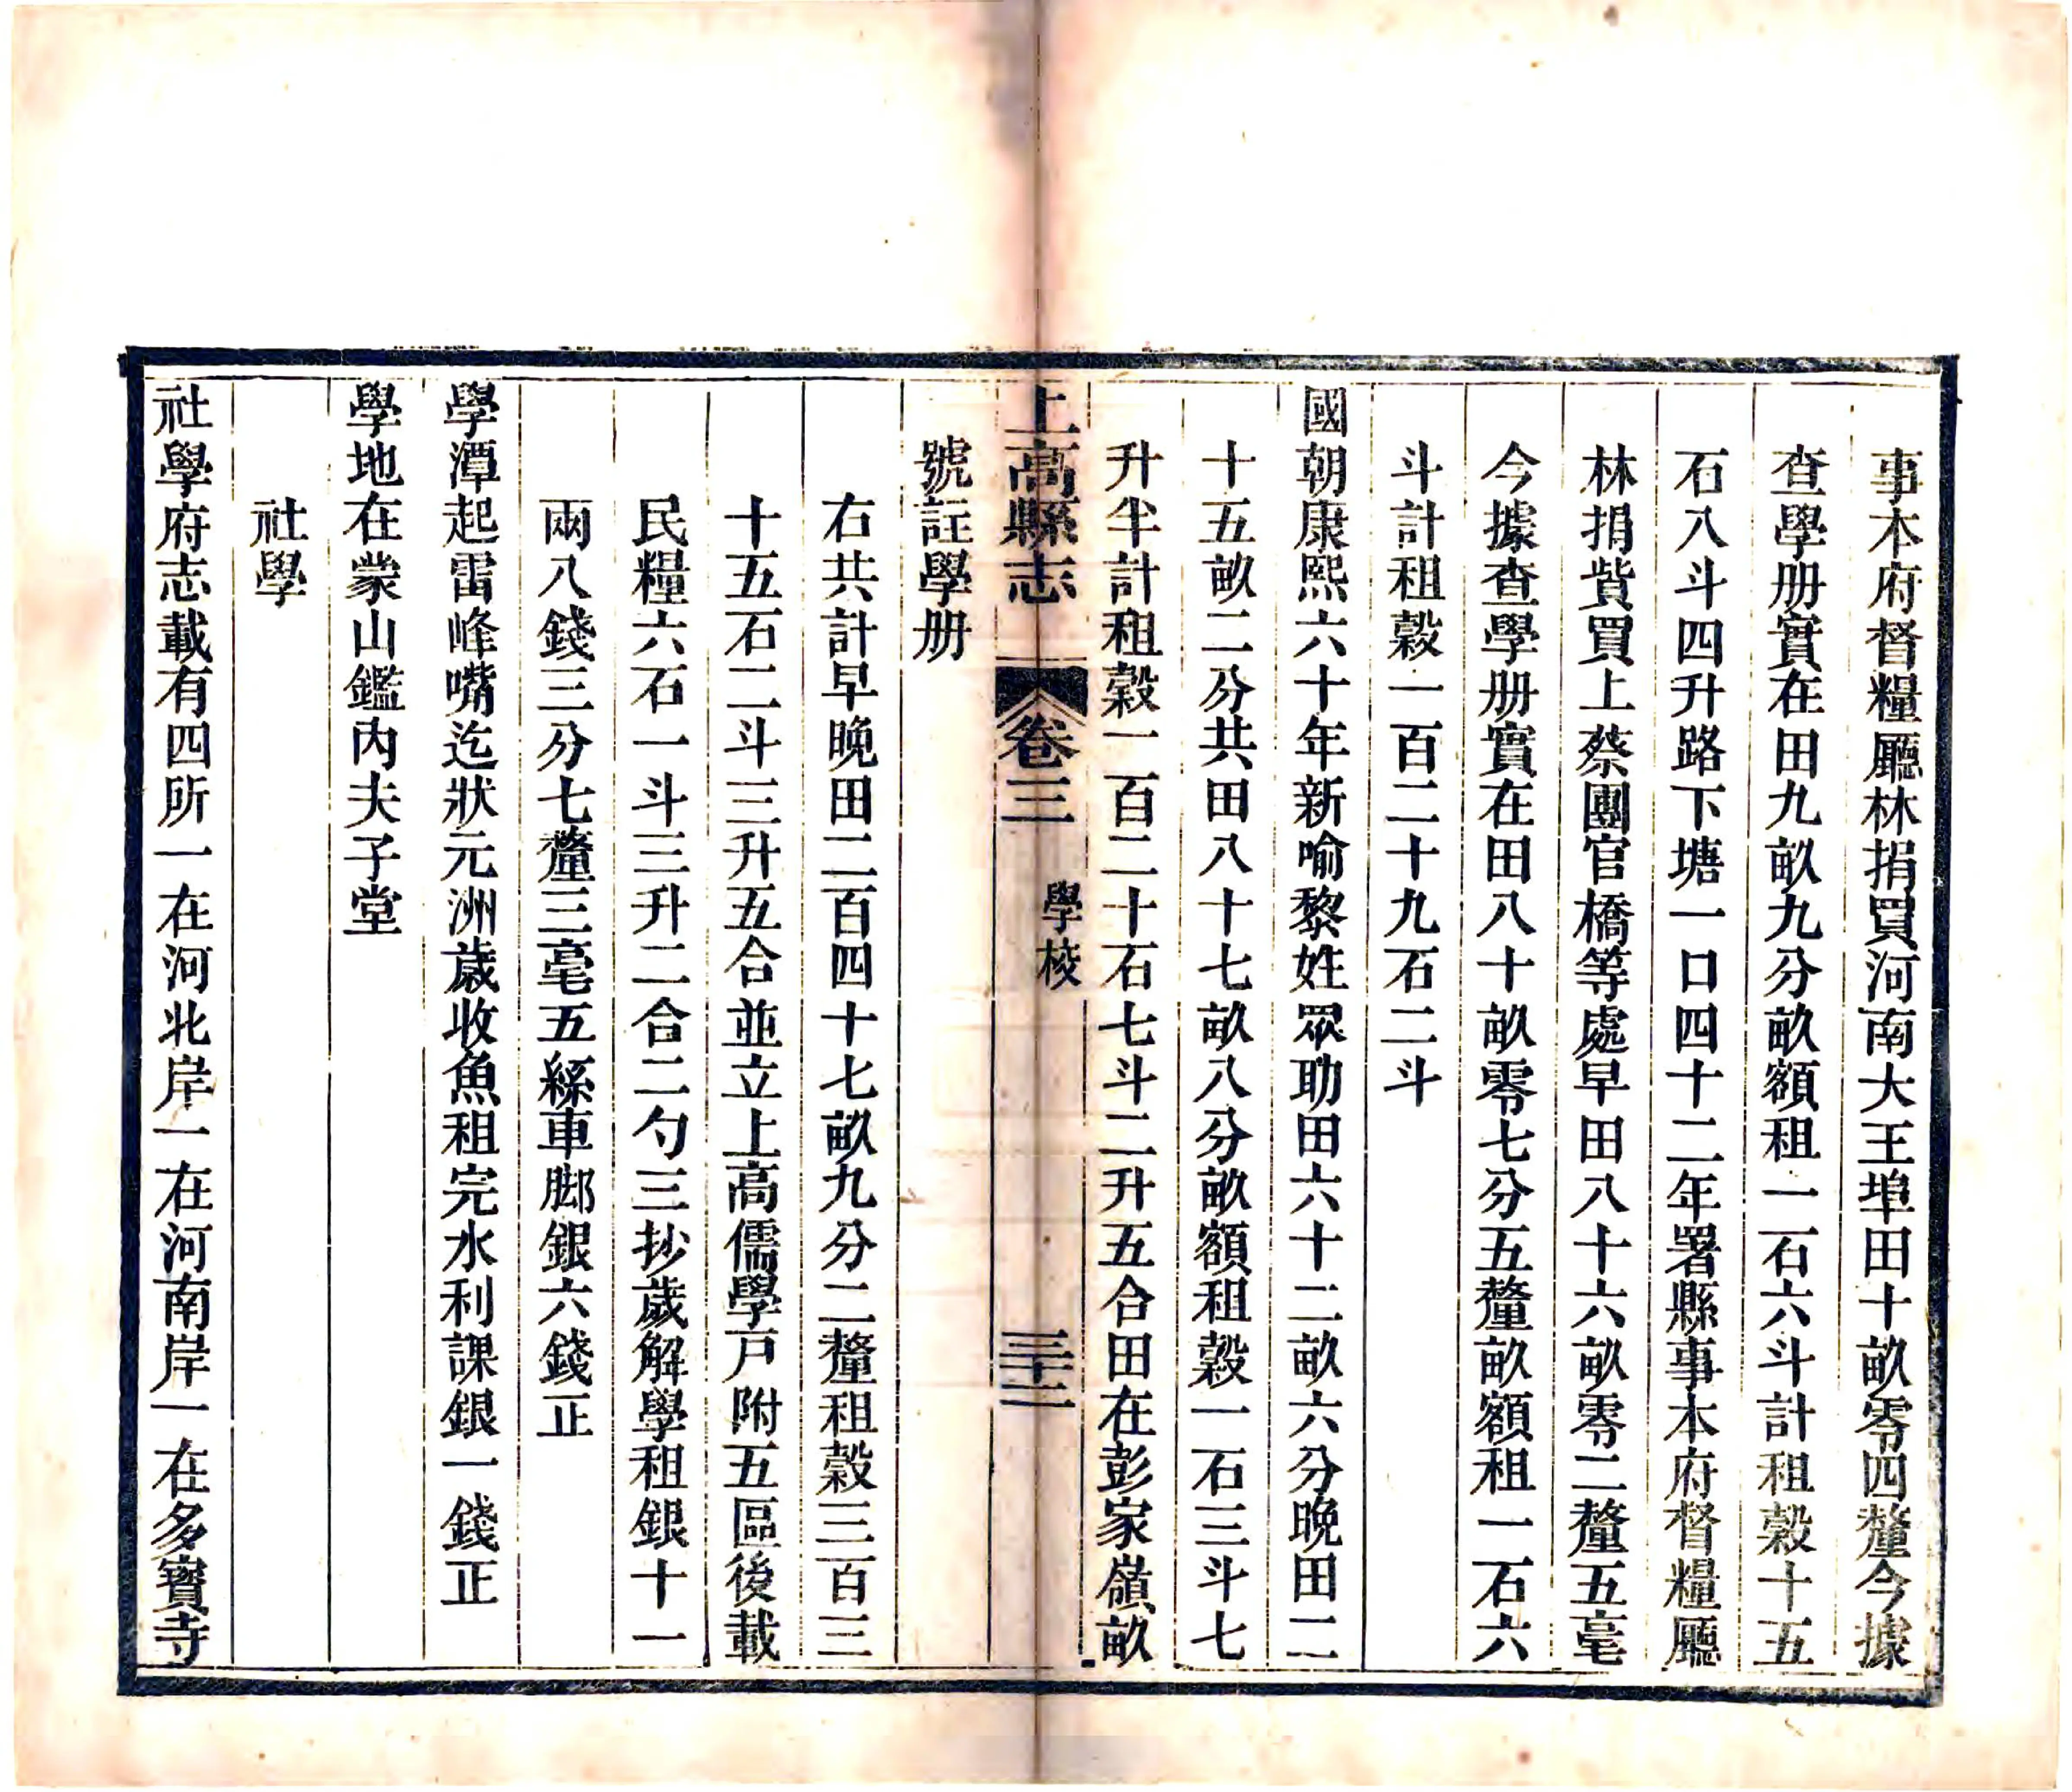 事本府督糧廳林捐買河南大王埠田十畝零四釐今據
查學册實在田九畝九分畝額租一石六斗計租穀十五
石八斗四升路下塘一口四十二年署縣事本府督糧廳
林捐貲買上蔡團官橋等處早田八十六畝零二釐五毫
今據查學册實在田八十畝零七分五釐畝額租一石六
斗計租穀一百二十九石二斗
國朝康熙六十年新喻黎姓眾助田六十二畝六分晚田二
十五畝二分共田八十七畝八分畝額租穀一石三斗七
升半計租穀一百二十石七斗二升五合田在彭家嶺畝
上高縣志 卷三 學校 三十二
號註學册
右共計早晚田二百四十七畝九分二釐租穀三百三
十五石二斗三升五合並立上高儒學戸附五區後載
民糧六石一斗三升二合二勺三抄歲解學租銀十一
兩八錢三分七釐三毫五絲車脚銀六錢正
學潭起雷峰嘴迄狀元洲歲收魚租完水利課銀一錢正
學地在蒙山鑑內夫子堂
社學
社學府志載有四所一在河北岸一在河南岸一在多寶寺